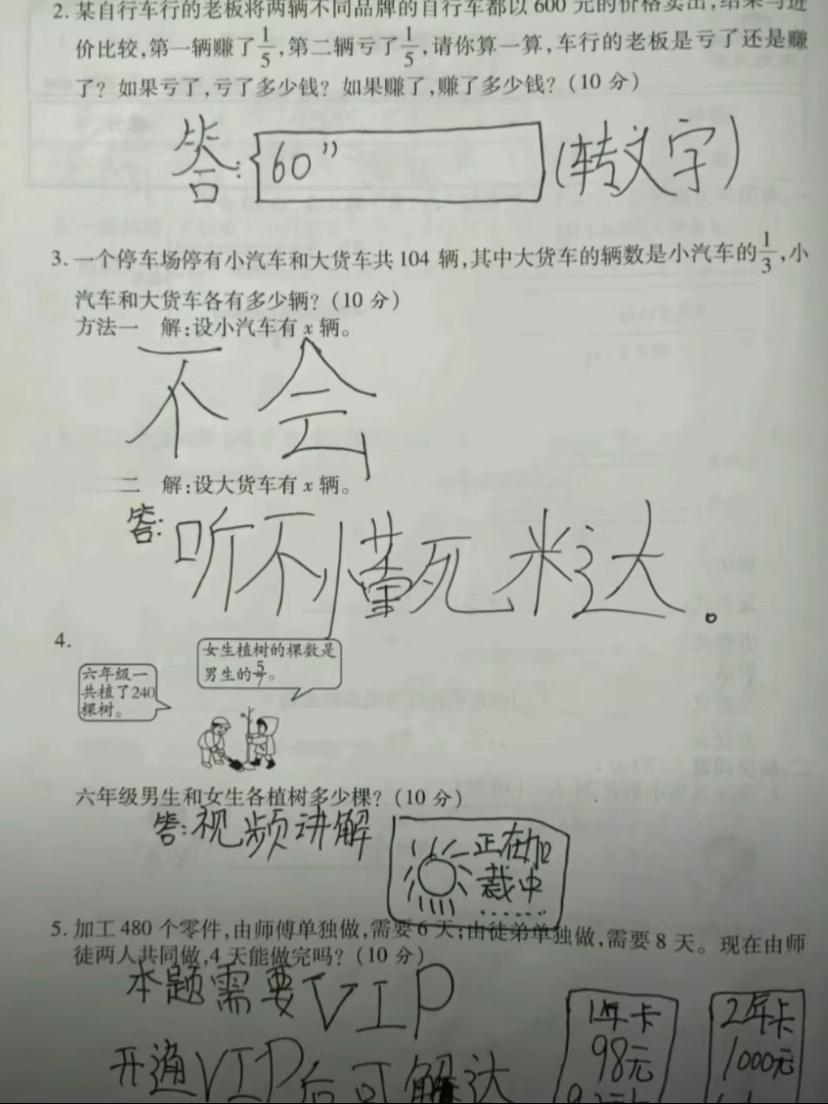 2. 某自行车行的老板将两辆不同品牌的自行车都以 600 元的价格卖出,结果与进
价比较,第一辆赚了1/5,第二辆亏了1/5,请你算一算,车行的老板是亏了还是赚
了?如果亏了,亏了多少钱?如果赚了,赚了多少钱?(10 分)
答: 60" (转文字)
3. 一个停车场停有小汽车和大货车共 104 辆,其中大货车的辆数是小汽车的1/3,小
汽车和大货车各有多少辆?(10 分)
方法一 解:设小汽车有 x 辆。
不会
二 解:设大货车有 x 辆。
答: 听不懂死米达。
4.
六年级一
共植了240
棵树。
女生植树的棵数是
男生的5/7。
六年级男生和女生各植树多少棵?(10 分)
答:视频讲解
正在加
载中
......
5. 加工 480 个零件,由师傅单独做,需要 6 天;由徒弟单独做,需要 8 天。现在由师
徒两人共同做,4 天能做完吗?(10 分)
本题需要VIP
开通VIP后可解达
1年卡
98元
2年卡
1000元